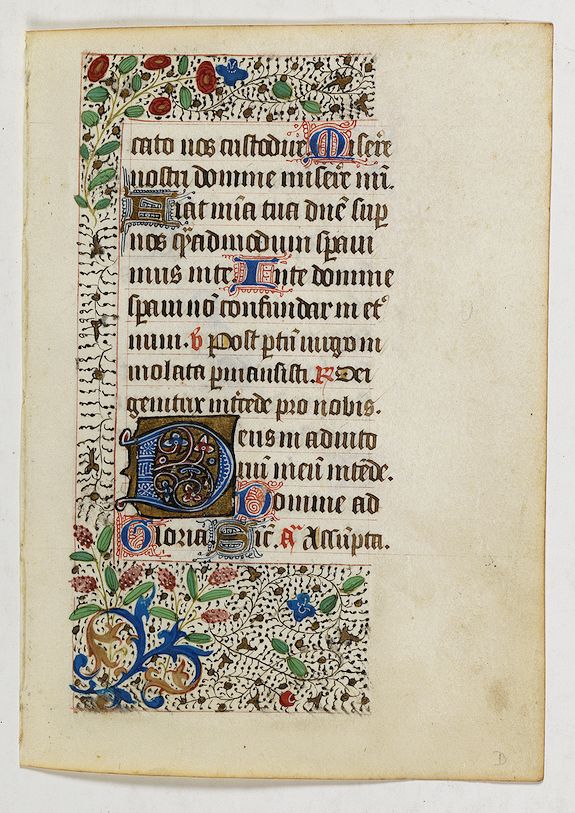 cato nos custodire Misere
nostri domine misere nri.
Fiat mia tua dne sup
nos qadmodum spaui
mus in te In te domine
spaui no confundar in et⁹
num. v Post ptu uirgo in
uiolata pmansisti. R Dei
genitrix intcede pro nobis.
Deus in adiuto
riu meu intede.
Domine ad
Gloria Sic. a Assupta.
D